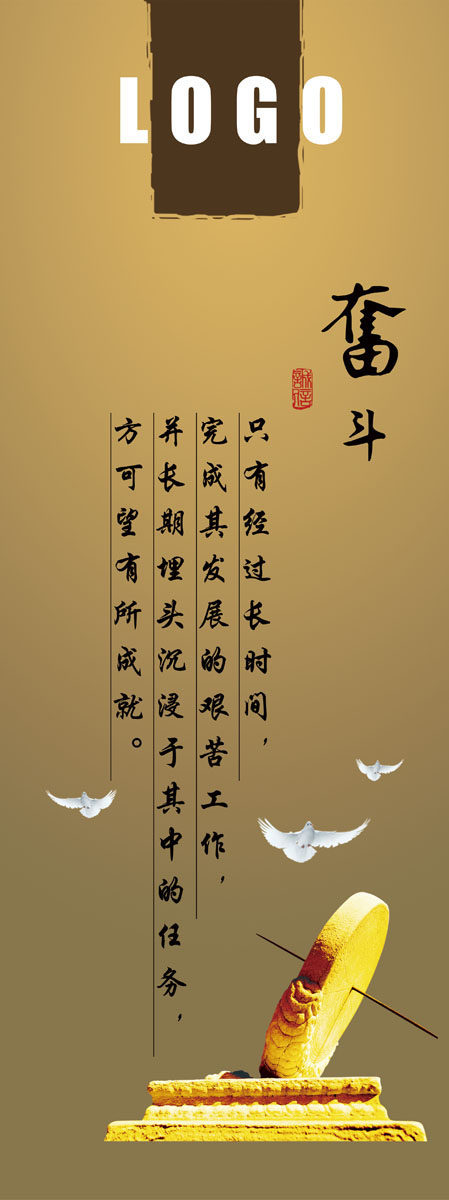 LOGO
奋斗
誠信
只有经过长时间，
完成其发展的艰苦工作，
并长期埋头沉浸于其中的任务，
方可望有所成就。